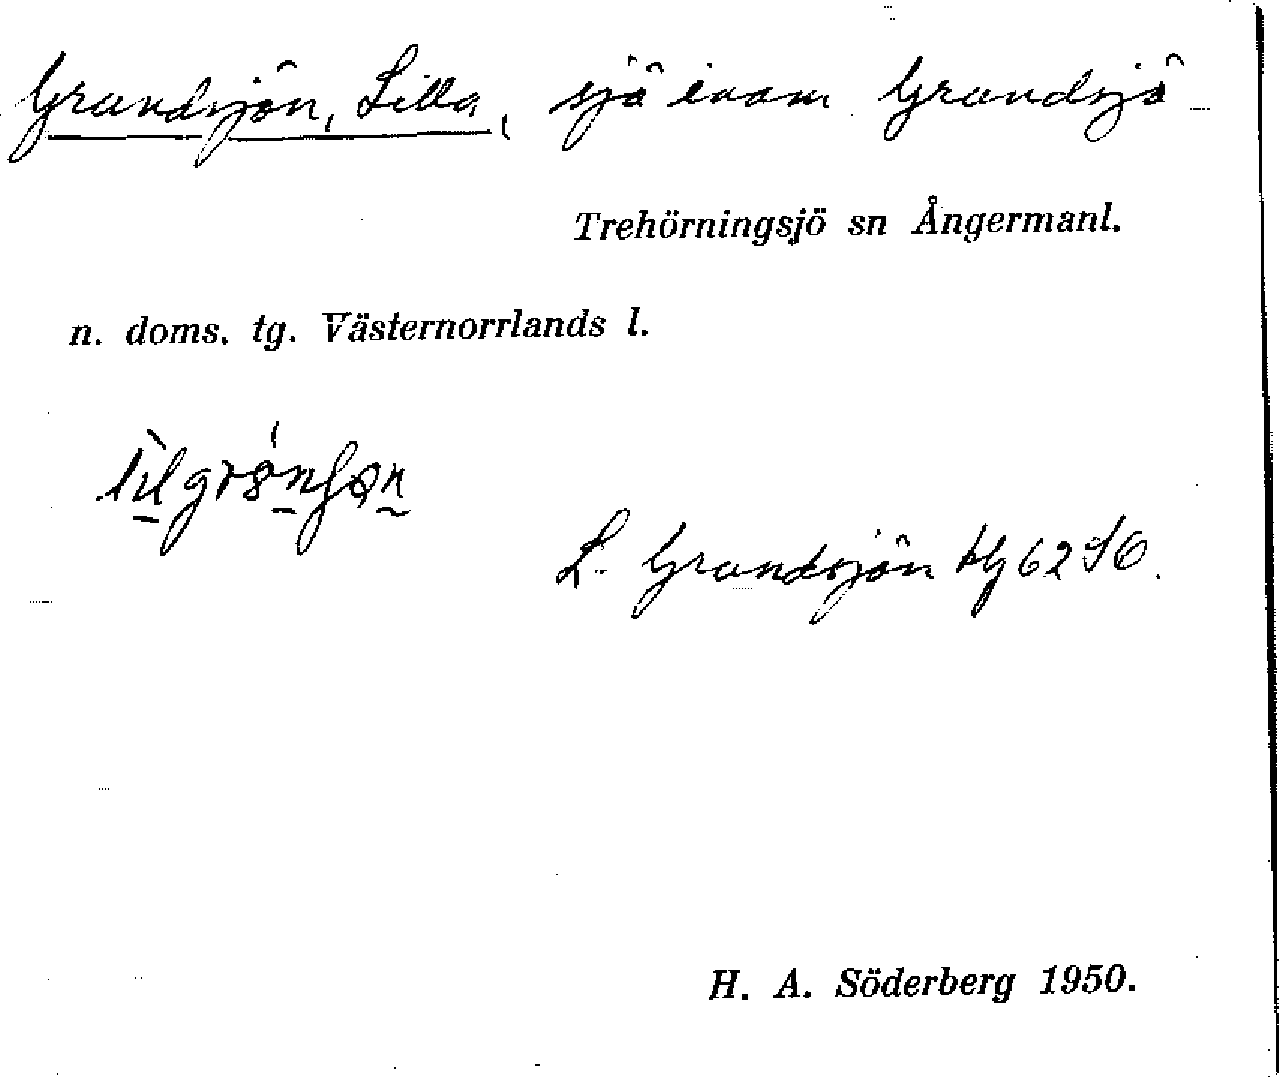 Grundsjön, Lilla, sjö inom Grundsjö
Trehörningsjö sn Ångermanl.
n. doms. tg. Västernorrlands l.
L. Grundsjön 62 SO.
H. A. Söderberg 1950.